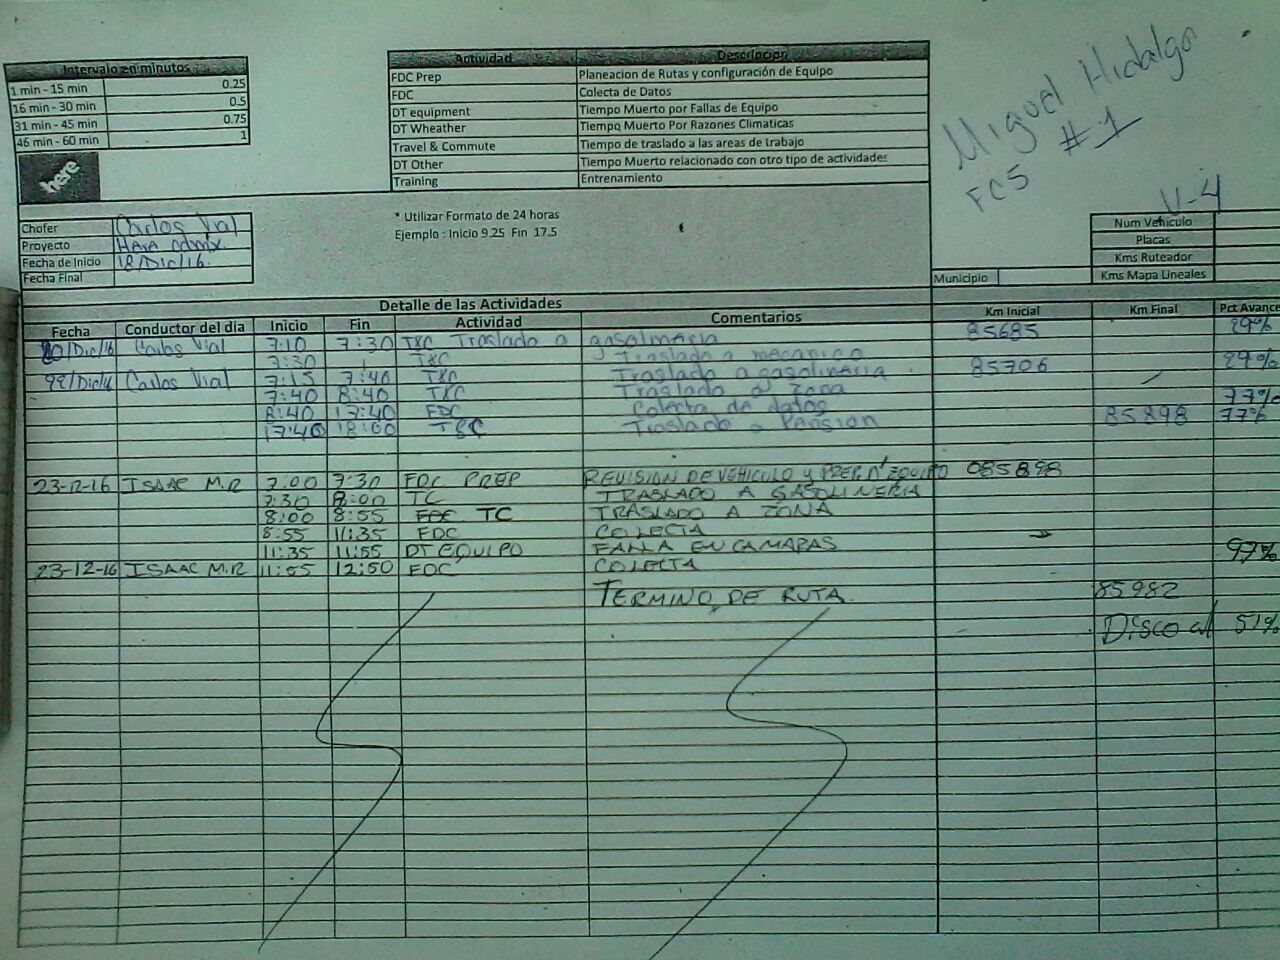 Intervalo en minutos
1 min - 15 min 0.25
16 min - 30 min 0.5
31 min - 45 min 0.75
46 min - 60 min 1
here
Actividad Descripcion
FDC Prep Planeacion de Rutas y configuración de Equipo
FDC Colecta de Datos
DT equipment Tiempo Muerto por Fallas de Equipo
DT Wheather Tiempo Muerto Por Razones Climaticas
Travel & Commute Tiempo de traslado a las areas de trabajo
DT Other Tiempo Muerto relacionado con otro tipo de actividades
Training Entrenamiento
Miguel Hidalgo
FC5 #1
V-4
* Utilizar Formato de 24 horas
Ejemplo : Inicio 9.25 Fin 17.5
Chofer Carlos Vial
Proyecto Here cdmx
Fecha de Inicio 18/Dic/16
Fecha Final
Num Vehiculo
Placas
Kms Ruteador
Municipio Kms Mapa Lineales
Detalle de las Actividades
Fecha Conductor del dia Inicio Fin Actividad Comentarios Km Inicial Km Final Pct Avance
/Dic/16 Carlos Vial 7:10 7:30 T&C Traslado a gasolineria 85685 29%
7:30 T&C Traslado a mecanico
22/Dic/16 Carlos Vial 7:15 7:40 T&C Traslado a gasolineria 85706 29%
7:40 8:40 T&C Traslado a zona
8:40 17:40 FDC Colecta de datos 77%
17:40 18:00 T&C Traslado a Pension 85898 77%
23-12-16 ISAAC M.R 7:00 7:30 FDC PREP REVISION DE VEHICULO y PREP. D' EQUIPO 085898
7:30 8:00 TC TRASLADO A GASOLINERIA
8:00 8:55 TC TRASLADO A ZONA
8:55 11:35 FDC COLECTA
11:35 11:55 DT EQUIPO FALLA EN CAMARAS
23-12-16 ISAAC M.R 11:55 12:50 FDC COLECTA 97%
TERMINO DE RUTA 85982
Disco al 51%